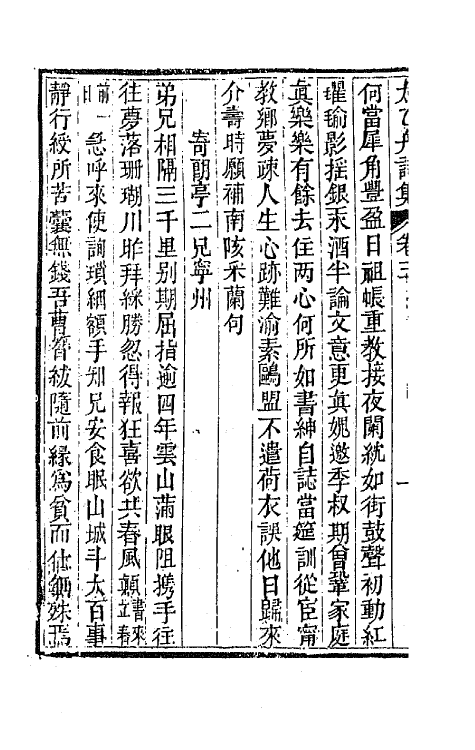 太乙舟詩集 卷三
何當犀角豐盈日祖帳重教接夜闌紞如街鼓聲初動紅
瑜影搖銀汞酒半論文意更真娓邀季叔期曾鞏家庭
真樂樂有餘去住两心何所如書紳自誌當筵訓從宦甯
教鄉夢疎人生心跡難渝素鷗盟不遣荷衣誤他日歸來
介壽時願補南陔采蘭句
寄朗亭二兄寧州
弟兄相隔三千里别期屈指逾四年雲山滿眼阻携手往
往夢落珊瑚川昨拜綵勝忽得報狂喜欲共春風顛書來立春
前一日急呼來使詢瑣細額手知兄安食眠山城斗大百事
靜行綬所苦囊無錢吾曹簪紱隨前緣爲貧而仕殊焉